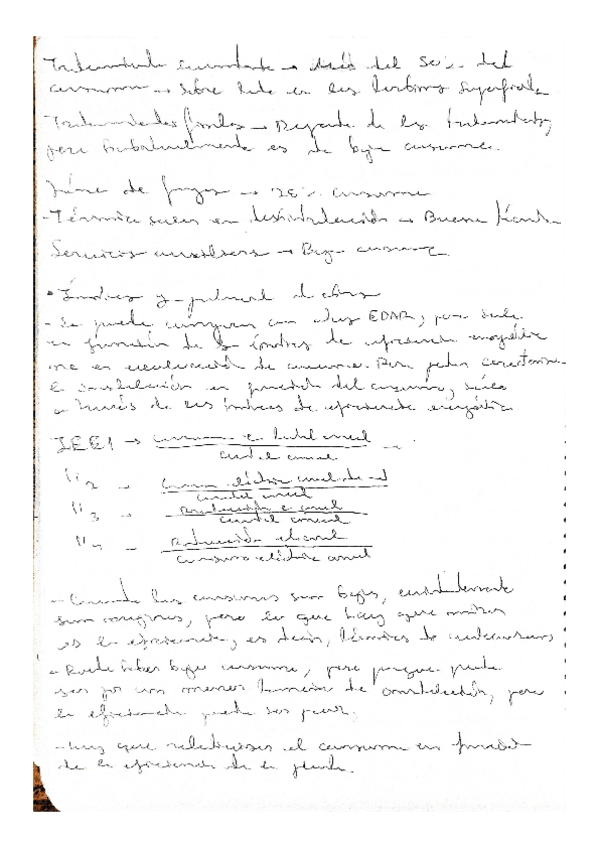 Tratamiento secundario → más del 50% del
consumo → sobre todo en las turbinas superficiales
- Tratamientos finales → Depende de los tratamientos,
pero habitualmente es de bajo consumo.
Línea de fangos → 20% consumo
- Térmica suele en deshidratación → Buena
Servicios auxiliares → Bajo consumo
• Índices y potencial de ahorro
- Se puede comparar con otras EDAR, pero suele
en función de los índices de eficiencia energética
no en evaluación de consumo. Para poder caracterizar
la instalación en función del consumo, sólo
a través de los índices de eficiencia energética
IEE1 → consumo e total anual
caudal anual
"2 → consumo eléctrico anual de
caudal anual
"3 → Producción e anual
caudal anual
"4 → Producción el anual
consumo eléctrico anual
- Cuando los consumos son bajos, evidentemente
son mejores, pero lo que hay que mirar
es la eficiencia, es decir, términos de
- Puede haber bajo consumo, pero porque puede
ser por un menor de contaminación, pero
la eficiencia puede ser peor.
- Hay que relacionar el consumo en función
de la eficiencia de la planta.